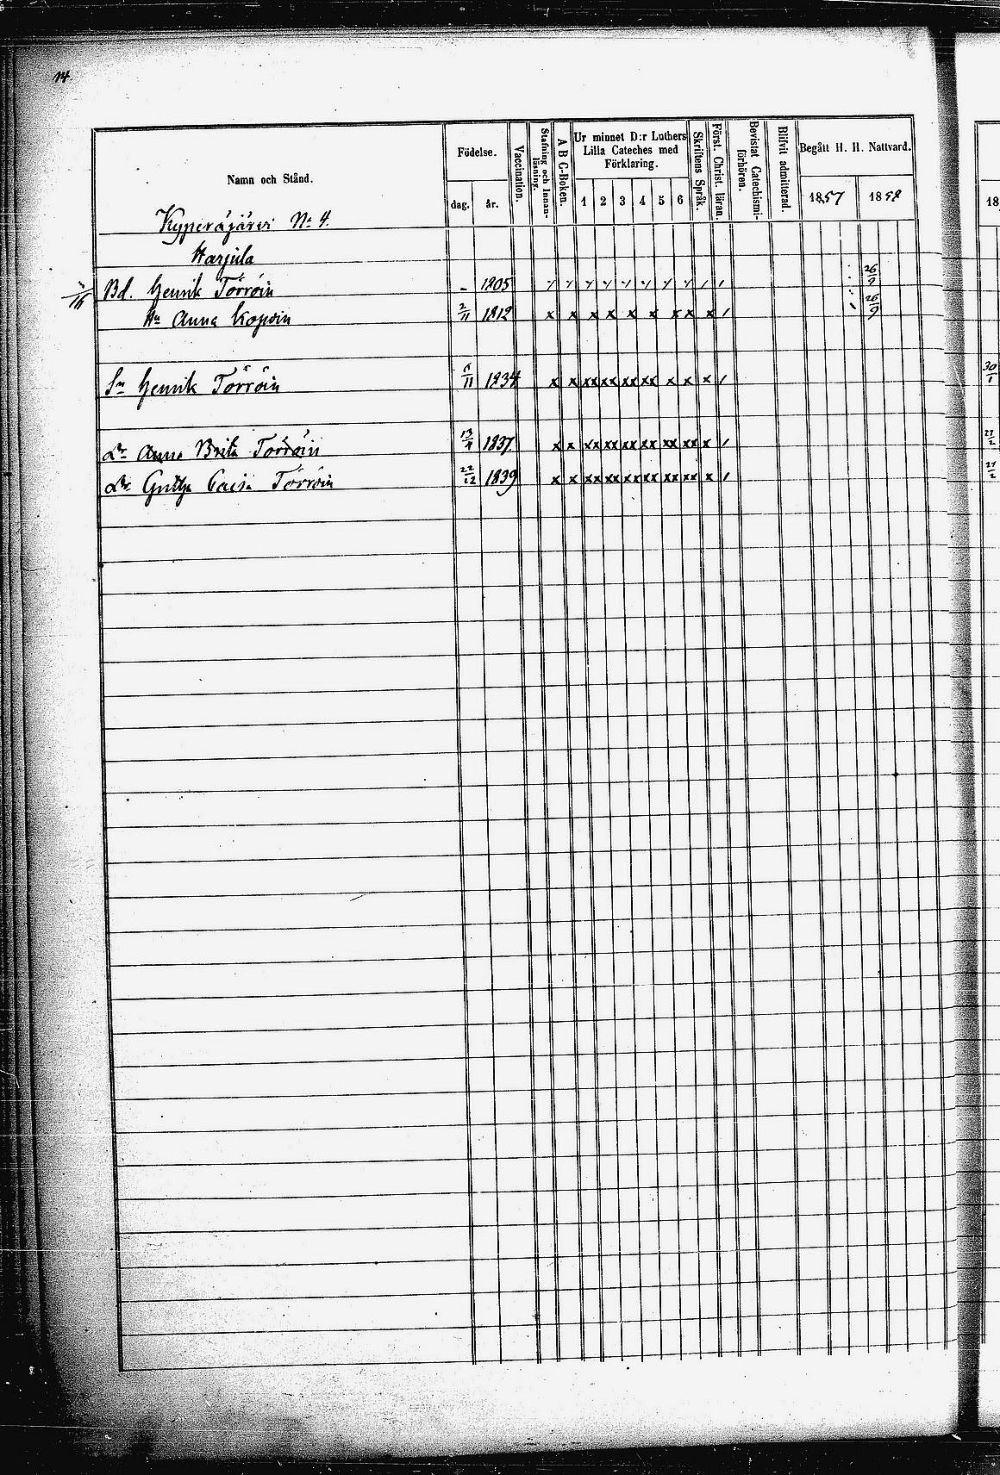 14
Namn och Stånd.
Födelse.
dag. år.
Vaccination.
Stafning och Innan-
läsning.
A B C-Boken.
Ur minnet D:r Luthers
Lilla Cateches med
Förklaring.
1 2 3 4 5 6
Skriftens Språk.
Först. Christ. läran.
Bevistat Catechismi-
förhören.
Blifvit admitterad.
Begått H. H. Nattvard.
1857 1858
18
N: 4.
Harjula
Bd. Henrik Törröin - 1805 26/9
Hu Anna 2/11 1812 x x x x x x x x x x 26/9
Sn Henrik Törröin 11 1834 x x xx xx xx xx x x x 30/1
Dr Anna Brita Törröin 1837 x x xx xx xx xx xx xx x 21/2
Dr Caisa Törröin 22/12 1839 x x xx xx xx xx xx xx x 21/2